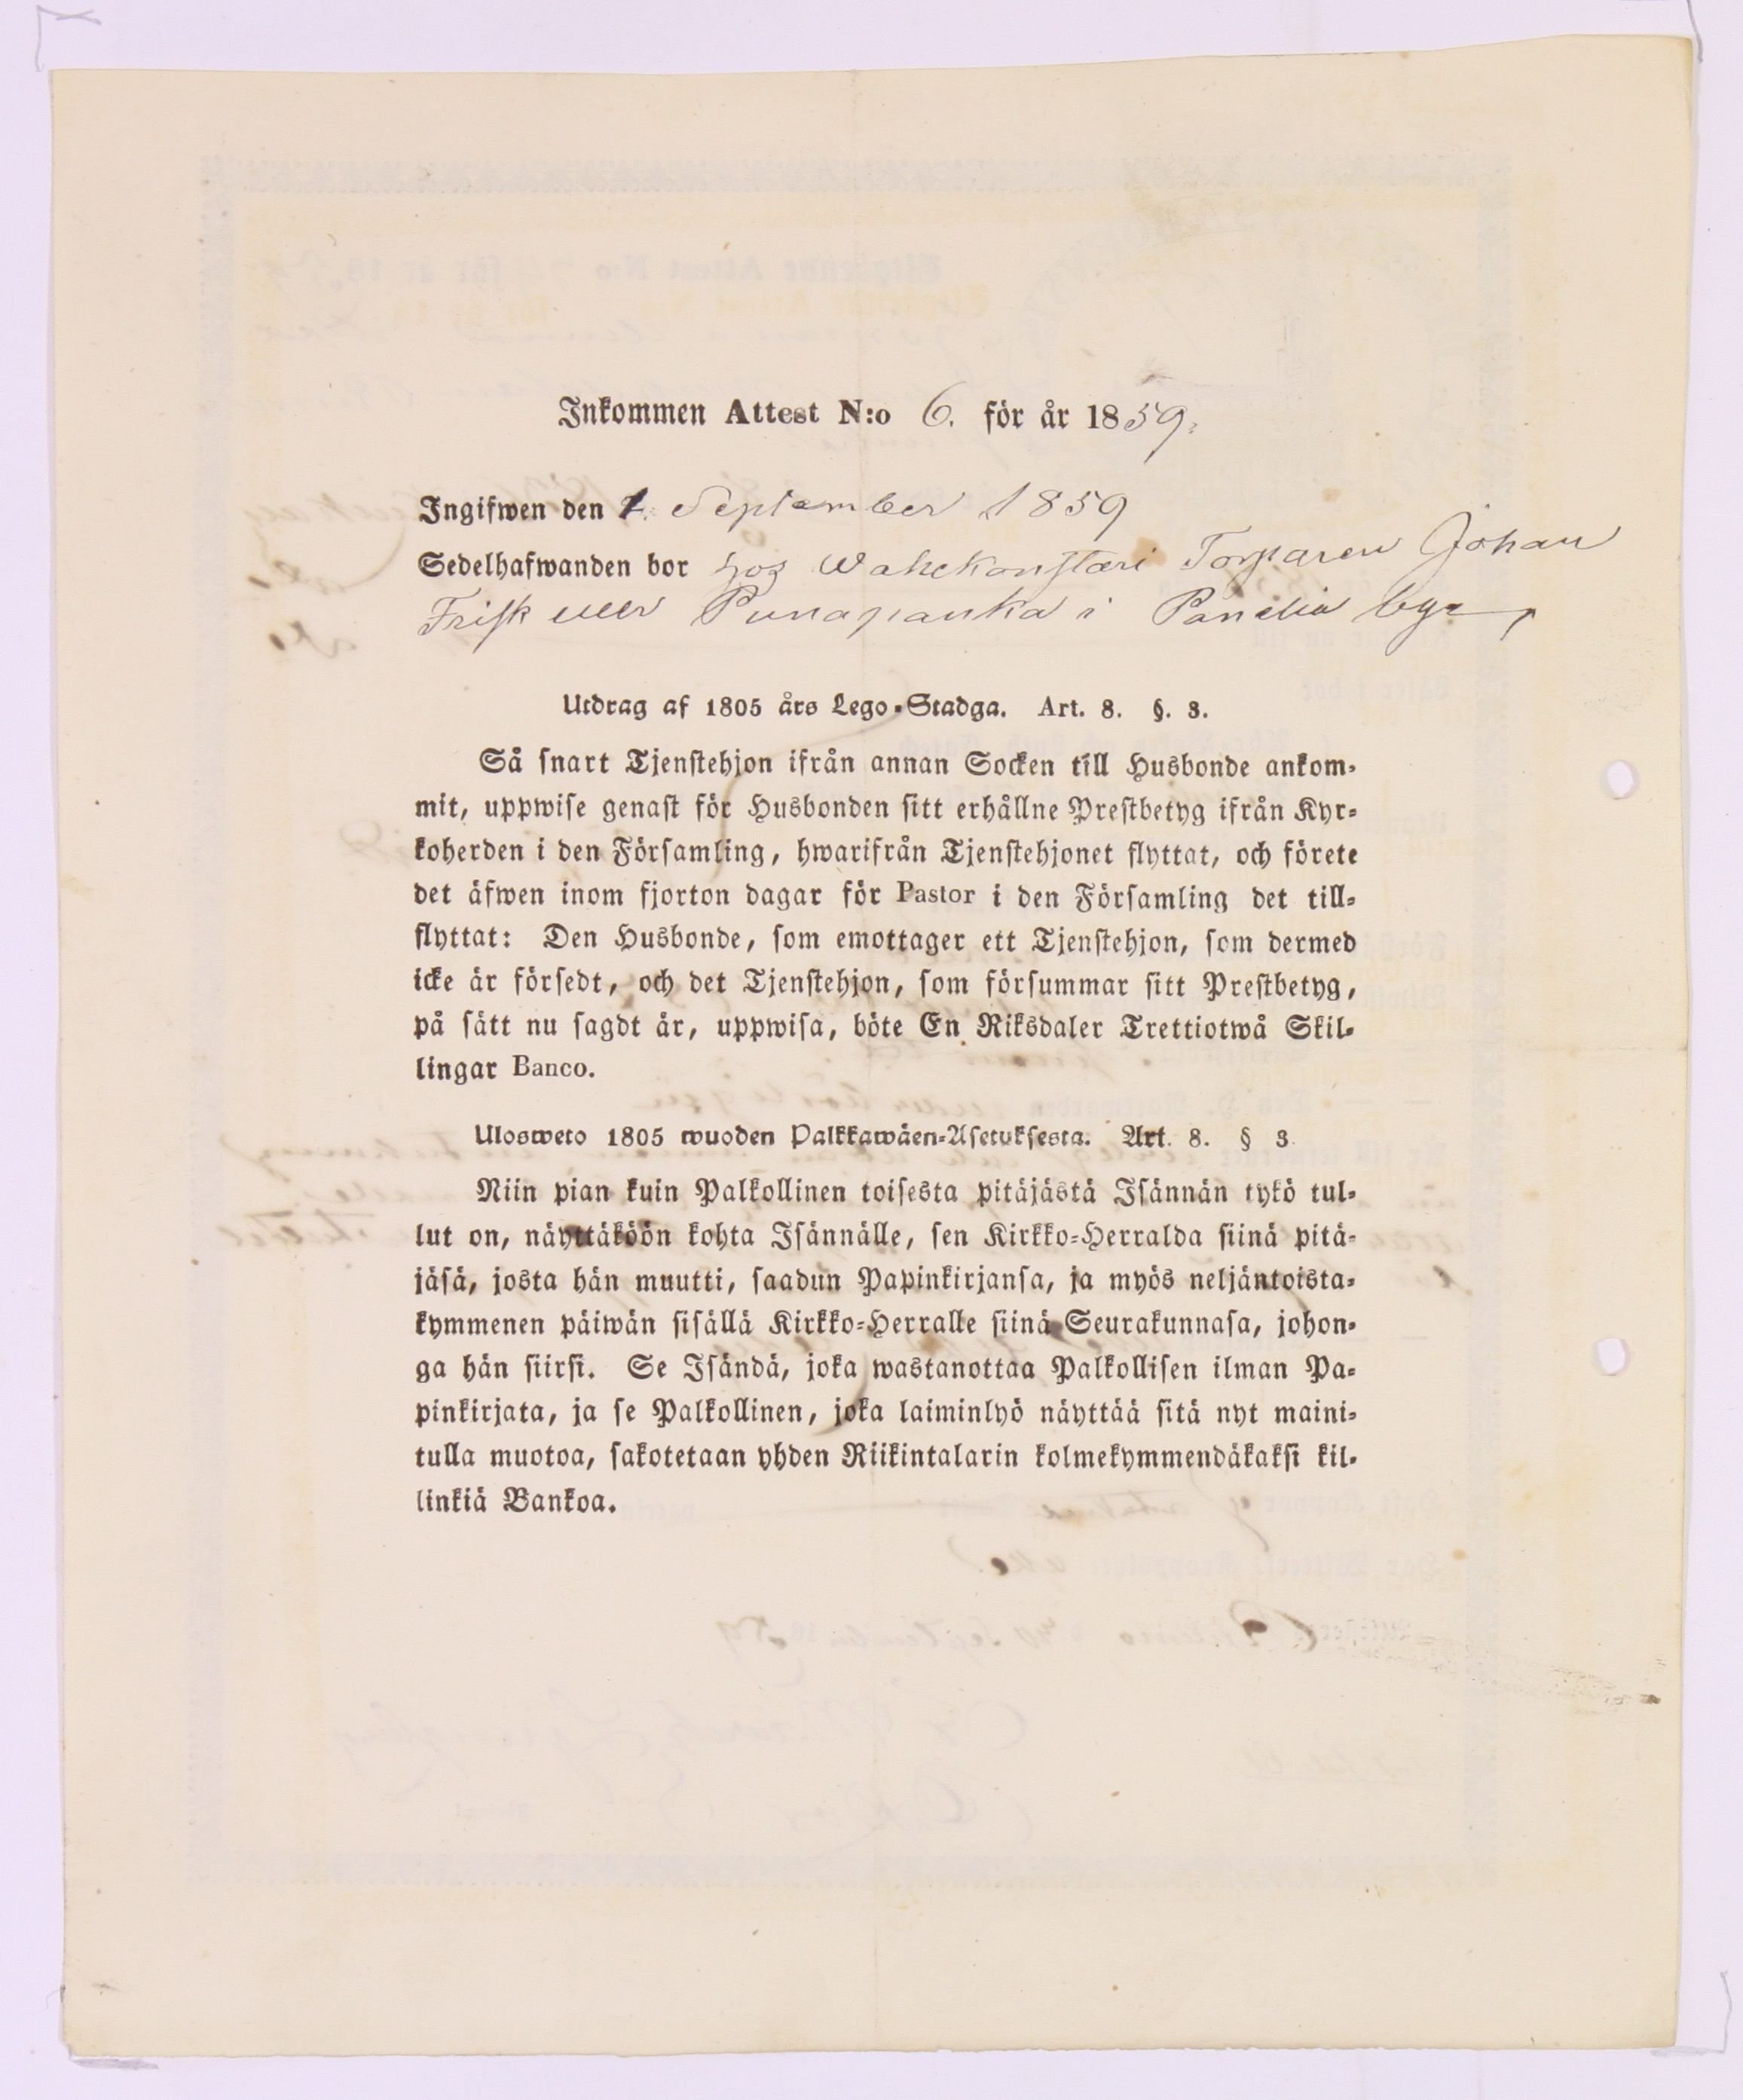 Inkommen Attest N:o 6. för år 1859.
Ingifwen den 1. September 1859
Sedelhafwanden bor hos Torparen Johan
Frisk eller Punapauka i Panelia by
Utdrag af 1805 års Lego-Stadga. Art. 8. §. 3.
Så snart Tjenstehjon ifrån annan Socken till Husbonde ankom-
mit, uppwise genast för Husbonden sitt erhållne Prestbetyg ifrån Kyr-
koherden i den Församling, hwarifrån Tjenstehjonet flyttat, och förete
det äfwen inom fjorton dagar för Pastor i den Församling det till-
flyttat: Den Husbonde, som emottager ett Tjenstehjon, som dermed
icke är försedt, och det Tjenstehjon, som försummar sitt Prestbetyg,
på sätt nu sagdt är, uppwisa, böte En Riksdaler Trettiotwå Skil-
lingar Banco.
Ulosweto 1805 wuoden Palkkawäen-Asetuksesta. Art. 8. § 3
Niin pian kuin Palkollinen toisesta pitäjästä Isännän tykö tul-
lut on, näyttäköön kohta Isännälle, sen Kirkko-Herralda siinä pitä-
jäsä, josta hän muutti, saadun Papinkirjansa, ja myös neljäntoista-
kymmenen päiwän sisällä Kirkko-Herralle siinä Seurakunnasa, johon-
ga hän siirsi. Se Isändä, joka wastanottaa Palkollisen ilman Pa-
pinkirjata, ja se Palkollinen, joka laiminlyö näyttää sitä nyt maini-
tulla muotoa, sakotetaan yhden Riikintalarin kolmekymmendäkaksi kil-
linkiä Bankoa.